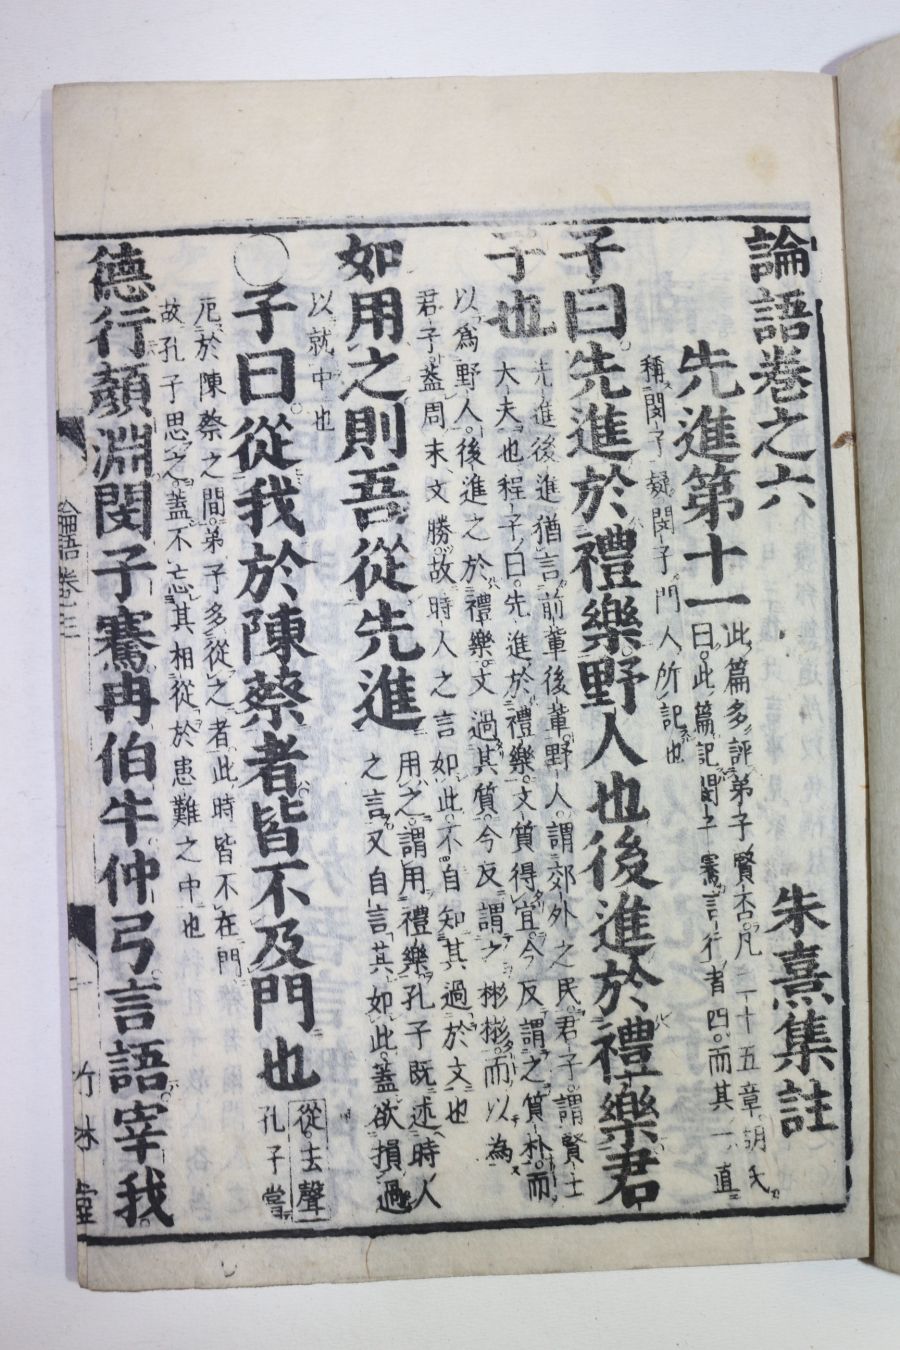 論語卷之六
朱熹集註
先進第十一
此篇多評弟子賢否凡二十五章胡氏
曰此篇記閔子騫言行者四而其一直
稱閔子疑閔子門人所記也
子曰先進於禮樂野人也後進於禮樂君
子也
先進後進猶言前輩後輩野人謂郊外之民君子謂賢士
大夫也程子曰先進於禮樂文質得宜今反謂之質朴而
以爲野人後進之於禮樂文過其質今反謂之彬彬而以為
君子蓋周末文勝故時人之言如此不自知其過於文也
如用之則吾從先進
用之謂用禮樂孔子既述時人
之言又自言其如此蓋欲損過
以就中也
○子曰從我於陳蔡者皆不及門也
從去聲
孔子嘗
厄於陳蔡之間弟子多從之者此時皆不在門
故孔子思之蓋不忘其相從於患難之中也
德行顏淵閔子騫冉伯牛仲弓言語宰我
論語卷三
一
竹林堂